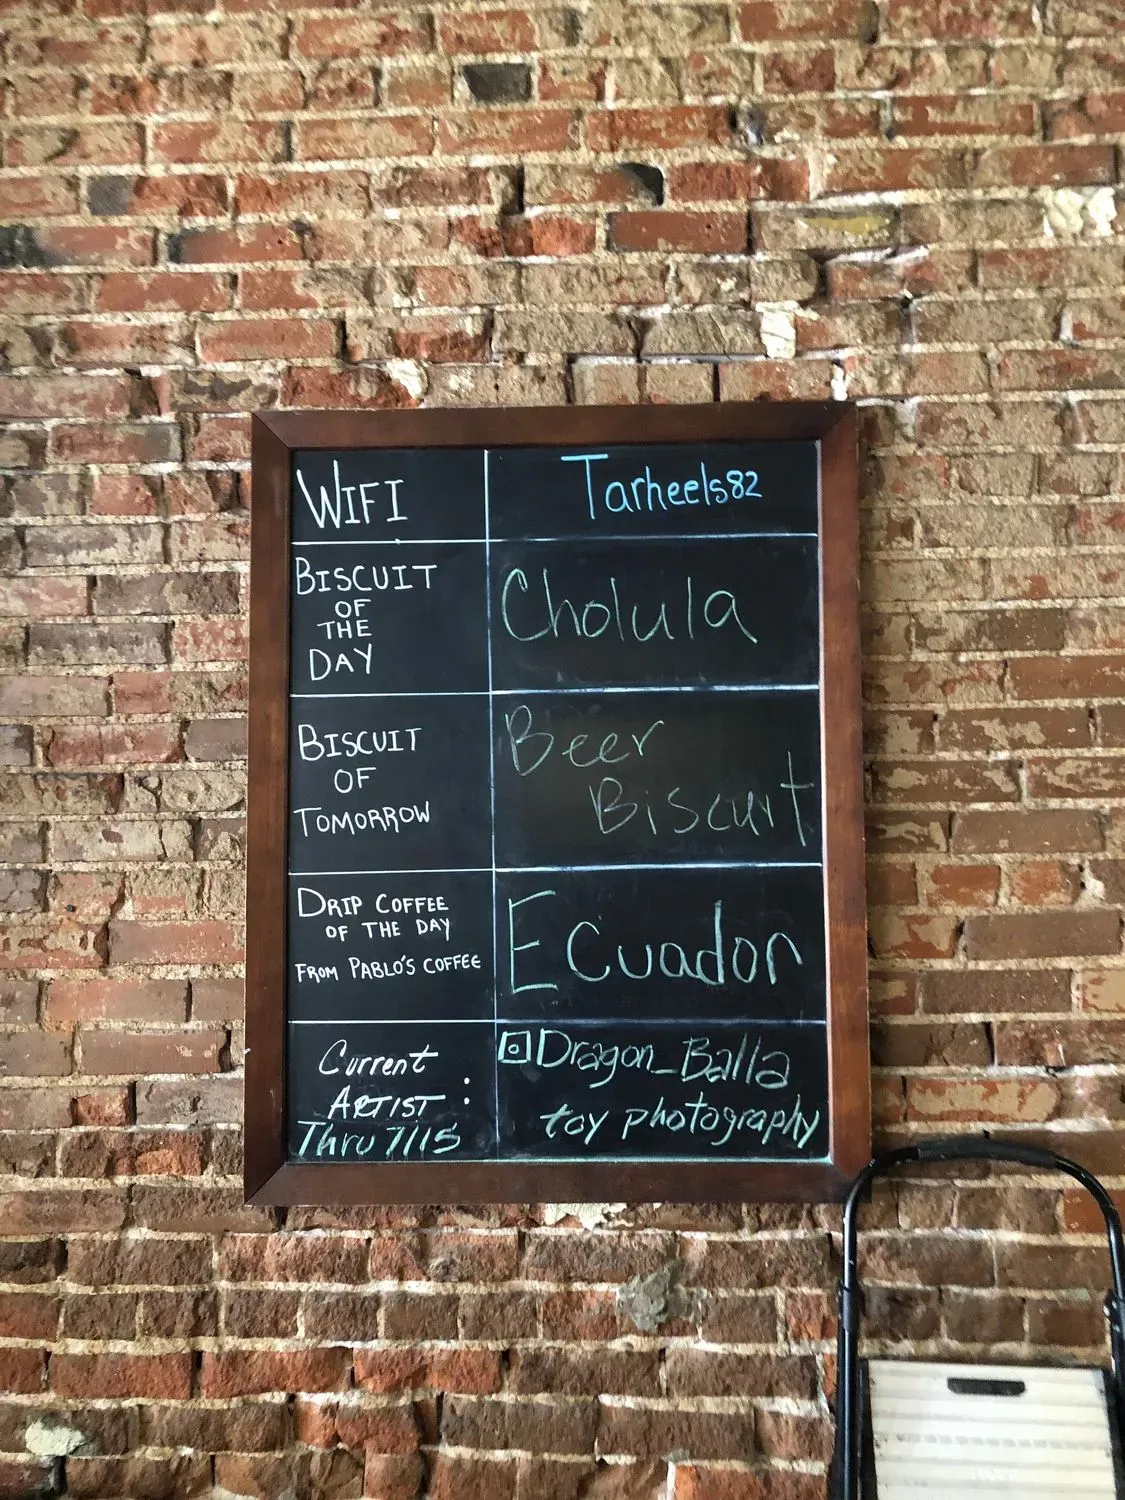 WIFI
Tarheels82
BISCUIT
OF
THE
DAY
Cholula
BISCUIT
OF
TOMORROW
Beer
Biscuit
DRIP COFFEE
OF THE DAY
FROM PABLO'S COFFEE
Ecuador
Current
ARTIST :
Thru 7/15
Dragon_Balla
toy photography